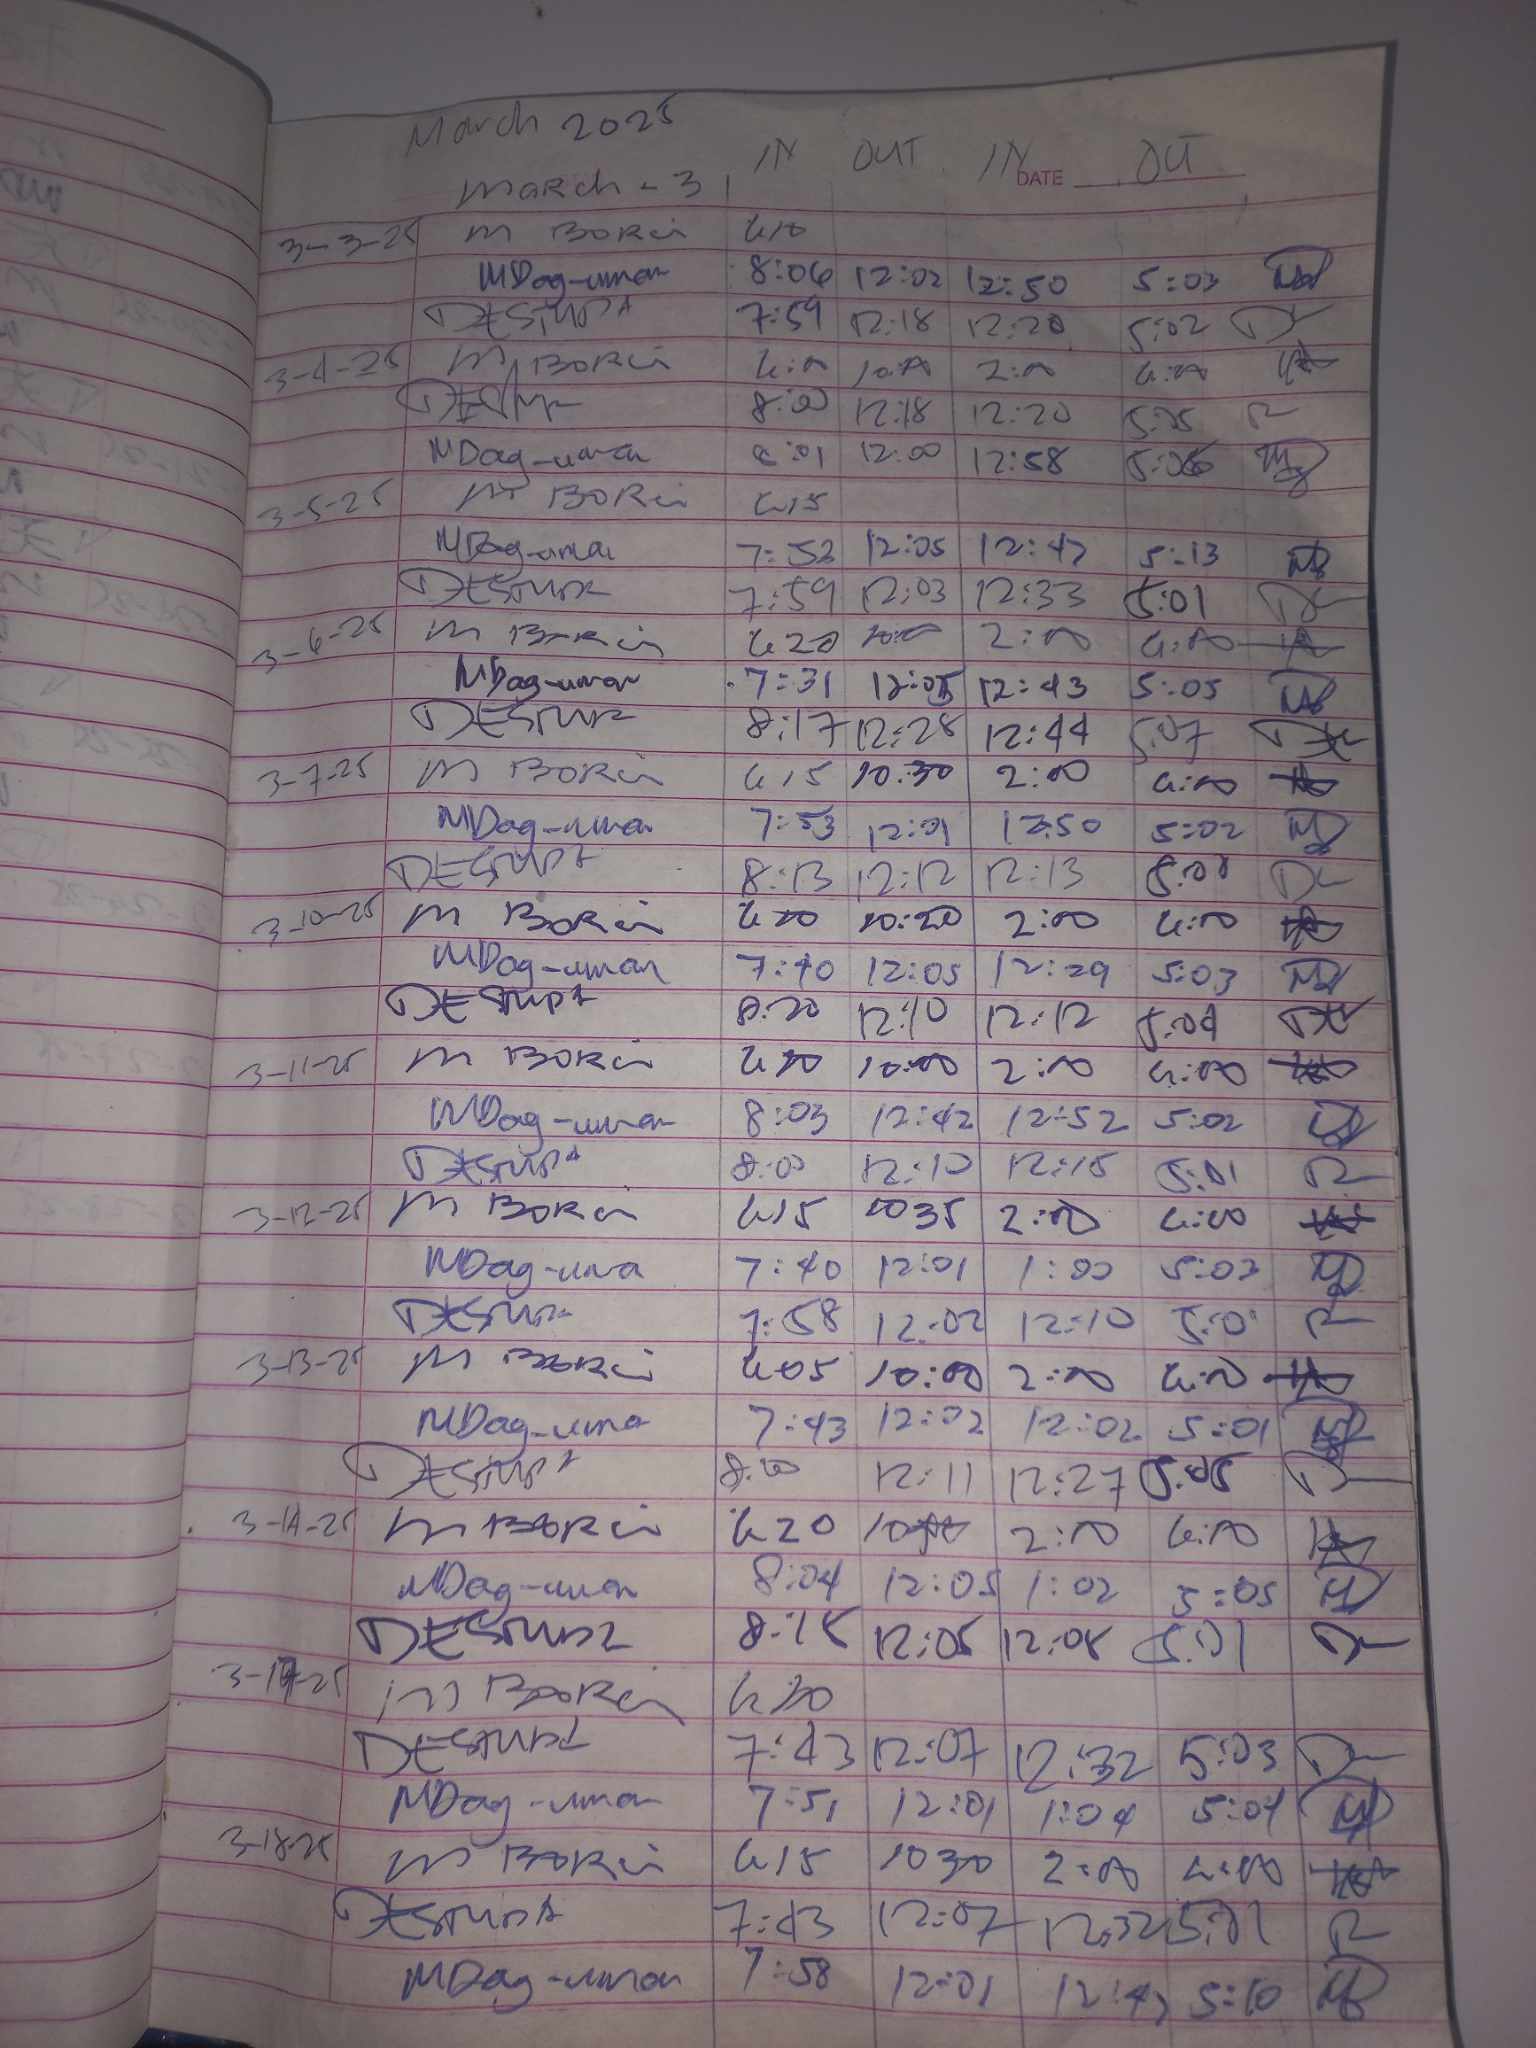 March 2025
IN OUT IN DATE OUT
March - 3
3-3-25 M BORCi 6:10
MDag-uman 8:06 12:02 12:50 5:03
DESTUPA 7:59 12:18 12:20 5:02
3-4-25 M BORCi 6:00 10:00 2:00 6:00
8:00 12:18 12:20 5:05
MDag-uman 8:01 12:00 12:58 5:06
3-5-25 M BORCi 6:15
MDag-uman 7:52 12:05 12:47 5:13
DESTUPA 7:59 12:03 12:33 5:01
3-6-25 M BORCi 6:20 10:00 2:00 6:00
MDag-uman 7:31 12:05 12:43 5:05
DESTUPA 8:17 12:28 12:44 5:07
3-7-25 M BORCi 6:15 10:30 2:00 6:00
MDag-uman 7:53 12:01 12:50 5:02
DESTUPA 8:13 12:12 12:13
3-10-25 M BORCi 10:20 2:00 6:00
MDag-uman 7:40 12:05 12:29 5:03
DESTUPA 8:20 12:10 12:12 5:04
3-11-25 M BORCi 10:00 2:00 6:00
MDag-uman 8:03 12:42 12:52 5:02
DESTUPA 8:00 12:10 12:15 5:01
3-12-25 M BORCi 6:15 1035 2:00 6:00
MDag-uma 7:40 12:01 1:00 5:02
DESTUPA 7:58 12:02 12:10
3-13-25 M BORCi 6:05 10:00 2:00 6:00
MDag-uma 7:43 12:02 12:02 5:01
DESTUPA 8:00 12:11 12:27 5:05
3-14-25 M BORCi 6:20 2:00 6:00
MDag-uman 8:04 12:05 1:02 5:05
DESTUPA 8:15 12:05 12:08 5:01
M BORCi
DESTUPA 7:43 12:07 12:32 5:03
MDag-uman 7:51 12:01 1:04 5:04
3-18-25 M BORCi 6:15 1030 2:00 6:00
DESTUPA 7:43 12:07 12:32 5:01
MDag-uman 7:58 12:01 12:47 5:10